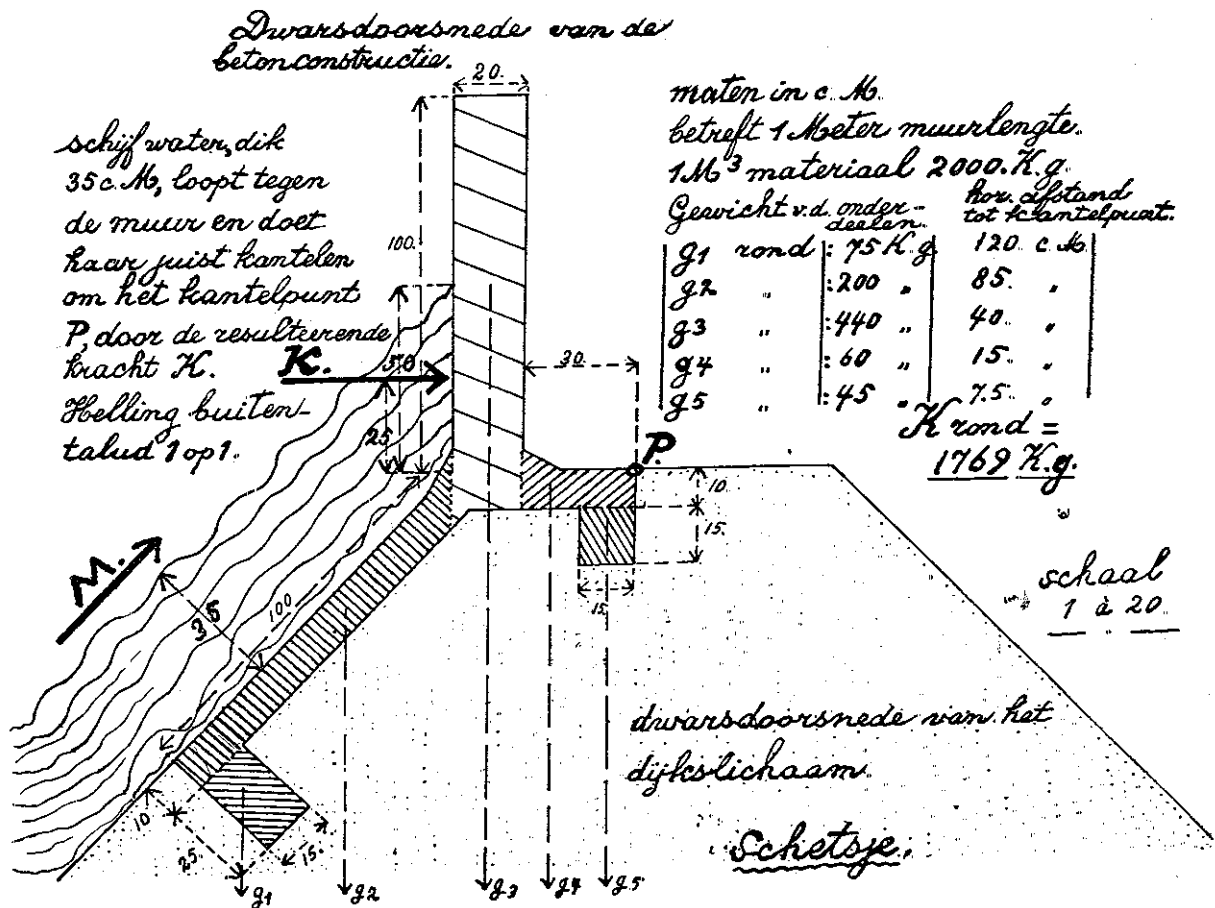 Dwarsdoorsnede van de
betonconstructie.
20.
schijf water, dik
35 c.M, loopt tegen
de muur en doet
haar juist kantelen
om het kantelpunt
P, door de resulteerende
kracht K.
Helling buiten-
talud 1 op 1.
maten in c.M.
betreft 1 Meter muurlengte.
1M³ materiaal 2000.K.g.
Gewicht v.d. onder-
deelen.
hor. afstand
tot kantelpunt.
g1 rond : 75 K.g. 120 c.M.
g2 „ :200 „ 85. „
g3 „ :440 „ 40. „
g4 „ :60 „ 15. „
g5 „ :45 „ 7.5. „
K rond =
1769 K.g.
100.
K.
50
25
30.
P.
10.
15.
15.
M.
35
100
schaal
1 à 20.
dwarsdoorsnede van het
dijkslichaam.
Schetsje.
10
25.
15.
g1
g2
g3
g4
g5